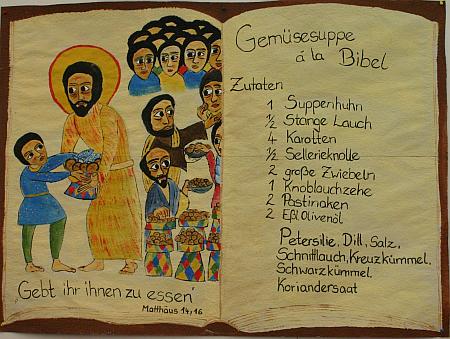 „Gebt ihr ihnen zu essen"
Matthäus 14,16
Gemüsesuppe
á la Bibel
Zutaten
1 Suppenhuhn
½ Stange Lauch
4 Karotten
½ Sellerieknolle
2 große Zwiebeln
1 Knoblauchzehe
2 Pastinaken
2 Eßl. Olivenöl
Petersilie, Dill, Salz,
Schnittlauch, Kreuzkümmel,
Schwarzkümmel,
Koriandersaat